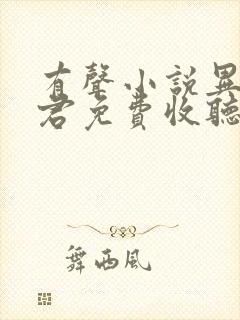 有聲小說異
君免費收聽
舞西風